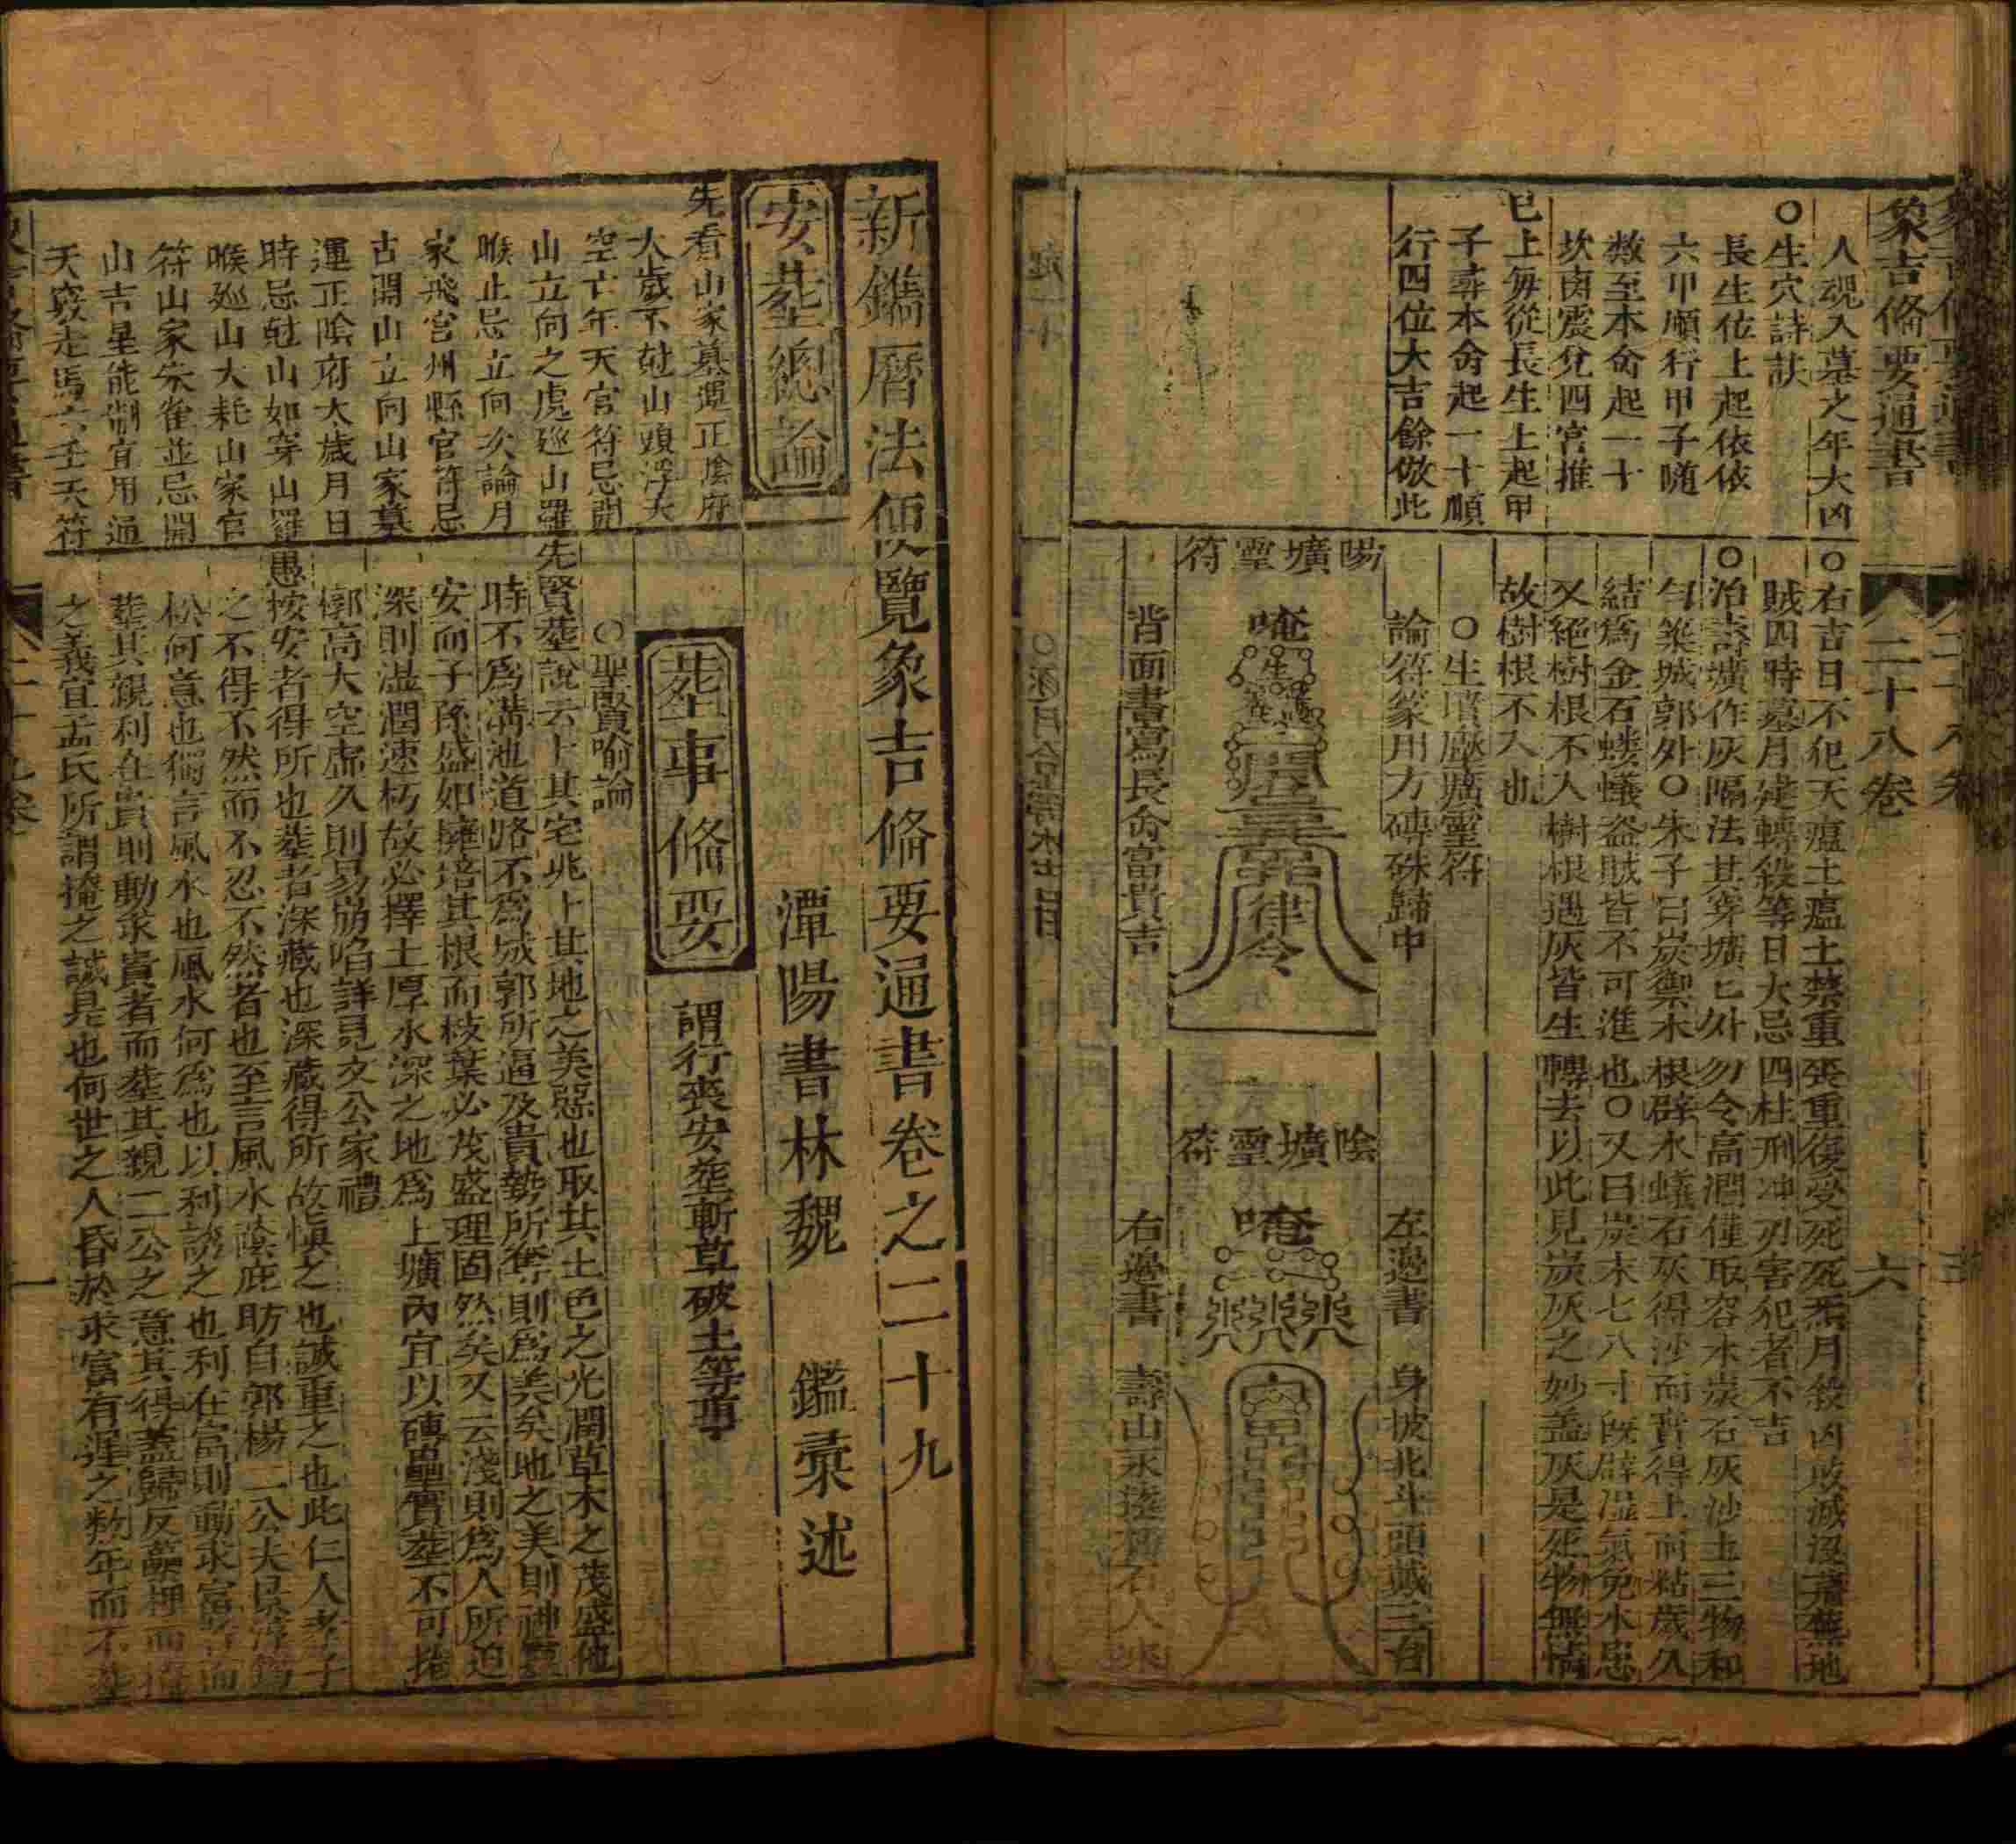 象吉俻要通書
二十八卷
六
人魂入墓之年大凶
○生穴詩訣
長生位上起依依
六甲順行甲子随
数至本命起一十
坎离震兌四宮推
已上每從長生上起甲
子尋本命起一十順
行四位大吉餘倣此
○右吉日不犯天瘟土瘟土禁重喪重復受死死炁月殺凶敗滅沒
賊四時墓月建轉殺等日大忌四柱刑冲刃害犯者不吉
○治壽壙作灰隔法其穿壙
勿令高濶僅取容木炭石灰沙土三物和
勻築城郭外○朱子曰炭禦木根辟水蟻石灰得沙而實得土而粘歲久
結爲金石螻蟻盗賊皆不可進也○又曰炭末七八寸既辟濕氣免水患
又絕樹根不入樹根遇灰皆生轉去以此見炭灰之妙盖灰是死物無情
故樹根不入也
○生墳壓壙靈符
論符篆用方磚硃歸中
左邊書
身披北斗頭戴三台
陽壙靈符
唵
律令
陰壙靈符
唵
背面書寫長命富貴吉
右邊書
壽山永遠石人
新鐫曆法便覽象吉俻要通書卷之二十九
潭陽書林魏
鑑彙述
安塟總論
先看山家墓運正陰府
太歲不尅山頭浮天
空亡年天官符忌開
山立向之處廵山羅
㬋止忌立向次論月
家飛宮州縣官符忌
古開山立向山家墓
運正陰府太歲月日
時忌尅山如穿山羅
㬋廵山大耗山家官
符山家朱雀並忌開
山吉星能制宜用通
天竅走馬六壬天符
塟事俻要
謂行喪安塟斬草破土等事
○聖賢喻論
先賢塟說云卜其宅兆卜其地之美惡也取其土色之光潤草木之茂盛他
時不爲溝池道路不爲城郭所逼及貴勢所奪則爲美矣地之美則神靈
安而子孫盛如擁培其根而枝葉必茂盛理固然矣又云淺則爲人所迫
深則濕潤速朽故必擇土厚水深之地爲上壙內宜以磚壘實塟不可捲
郭高大空虛久則易崩陷詳見文公家禮
愚按安者得所也塟者深藏也深藏得所故愼之也誠重之也此仁人孝子
之不得不然而不忍不然者也至言風水陰庇昉自郭楊二公
松何意也獨言風水也風水何爲也以利誘之也利在富則動求富者而
塟其親利在貴則動求貴者而塟其親二公之意其得蓋歸反虆梩而掩
之義宜孟氏所謂掩之誠是也何世之人昏於求富有遲之数年而不塟
一